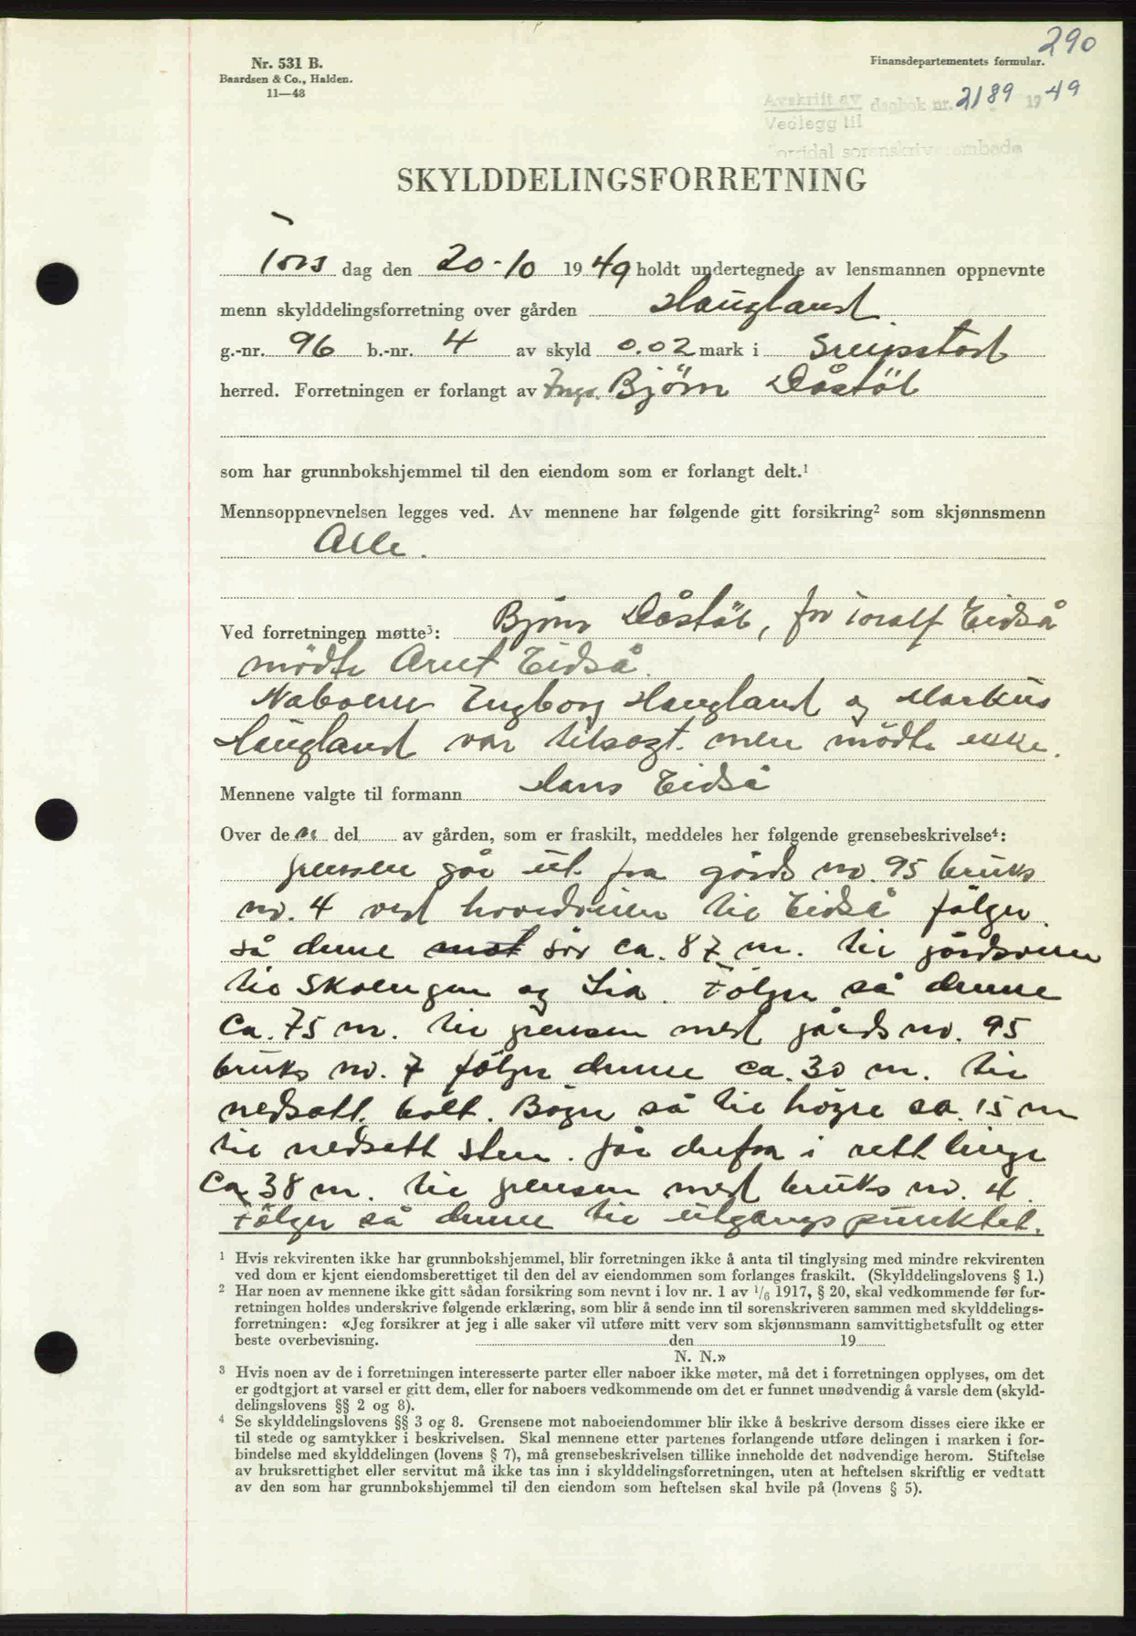 290
Nr. 531 B.
Baardsen & Co., Halden.
11—48
Finansdepartementets formular.
Avskrift av
Vedlegg til
dagbok nr. 2189 1949
sorenskriverembede
SKYLDDELINGSFORRETNING
Tors dag den 20-10 1949 holdt undertegnede av lensmannen oppnevnte
menn skylddelingsforretning over gården Haugland
g.-nr. 96 b.-nr. 4 av skyld 0.02 mark i
herred. Forretningen er forlangt av Ings. Bjørn Dåstöl
som har grunnbokshjemmel til den eiendom som er forlangt delt.¹
Mennsoppnevnelsen legges ved. Av mennene har følgende gitt forsikring² som skjønnsmenn
Alle.
Ved forretningen møtte³: Bjørn Dåstöl, for Toralf Eidså
mödte Arnt Eidså.
Naboene Engborg Haugland og Markus
Haugland var tilsagt. men mödte ikke.
Mennene valgte til formann Hans Eidså
Over de del av gården, som er fraskilt, meddeles her følgende grensebeskrivelse⁴:
Grensen går ut fra gårds no. 95 bruks
no. 4 ved hovedveien til Eidså följer
så denne mot sör ca. 87 m. til gårdsveien
til Skolengen og Lia. Fölger så denne
Ca. 75 m. til grensen med gårds no. 95
bruks no. 7 fölger denne ca. 30 m. til
nedsatt bolt. Böger så til högre ca. 15 m
til nedsett sten. Går derfra i rett linge
Ca 38 m. til grensen med bruks no. 4.
Fölger så denne til utgangspunktet.
¹ Hvis rekvirenten ikke har grunnbokshjemmel, blir forretningen ikke å anta til tinglysing med mindre rekvirenten
ved dom er kjent eiendomsberettiget til den del av eiendommen som forlanges fraskilt. (Skylddelingslovens § 1.)
² Har noen av mennene ikke gitt sådan forsikring som nevnt i lov nr. 1 av ¹/₆ 1917, § 20, skal vedkommende før for-
retningen holdes underskrive følgende erklæring, som blir å sende inn til sorenskriveren sammen med skylddelings-
forretningen: «Jeg forsikrer at jeg i alle saker vil utføre mitt verv som skjønnsmann samvittighetsfullt og etter
beste overbevisning. den 19
N. N.»
³ Hvis noen av de i forretningen interesserte parter eller naboer ikke møter, må det i forretningen opplyses, om det
er godtgjort at varsel er gitt dem, eller for naboers vedkommende om det er funnet unødvendig å varsle dem (skyld-
delingslovens §§ 2 og 8).
⁴ Se skylddelingslovens §§ 3 og 8. Grensene mot naboeiendommer blir ikke å beskrive dersom disses eiere ikke er
til stede og samtykker i beskrivelsen. Skal mennene etter partenes forlangende utføre delingen i marken i for-
bindelse med skylddelingen (lovens § 7), må grensebeskrivelsen tillike inneholde det nødvendige herom. Stiftelse
av bruksrettighet eller servitut må ikke tas inn i skylddelingsforretningen, uten at heftelsen skriftlig er vedtatt
av den som har grunnbokshjemmel til den eiendom som heftelsen skal hvile på (lovens § 5).